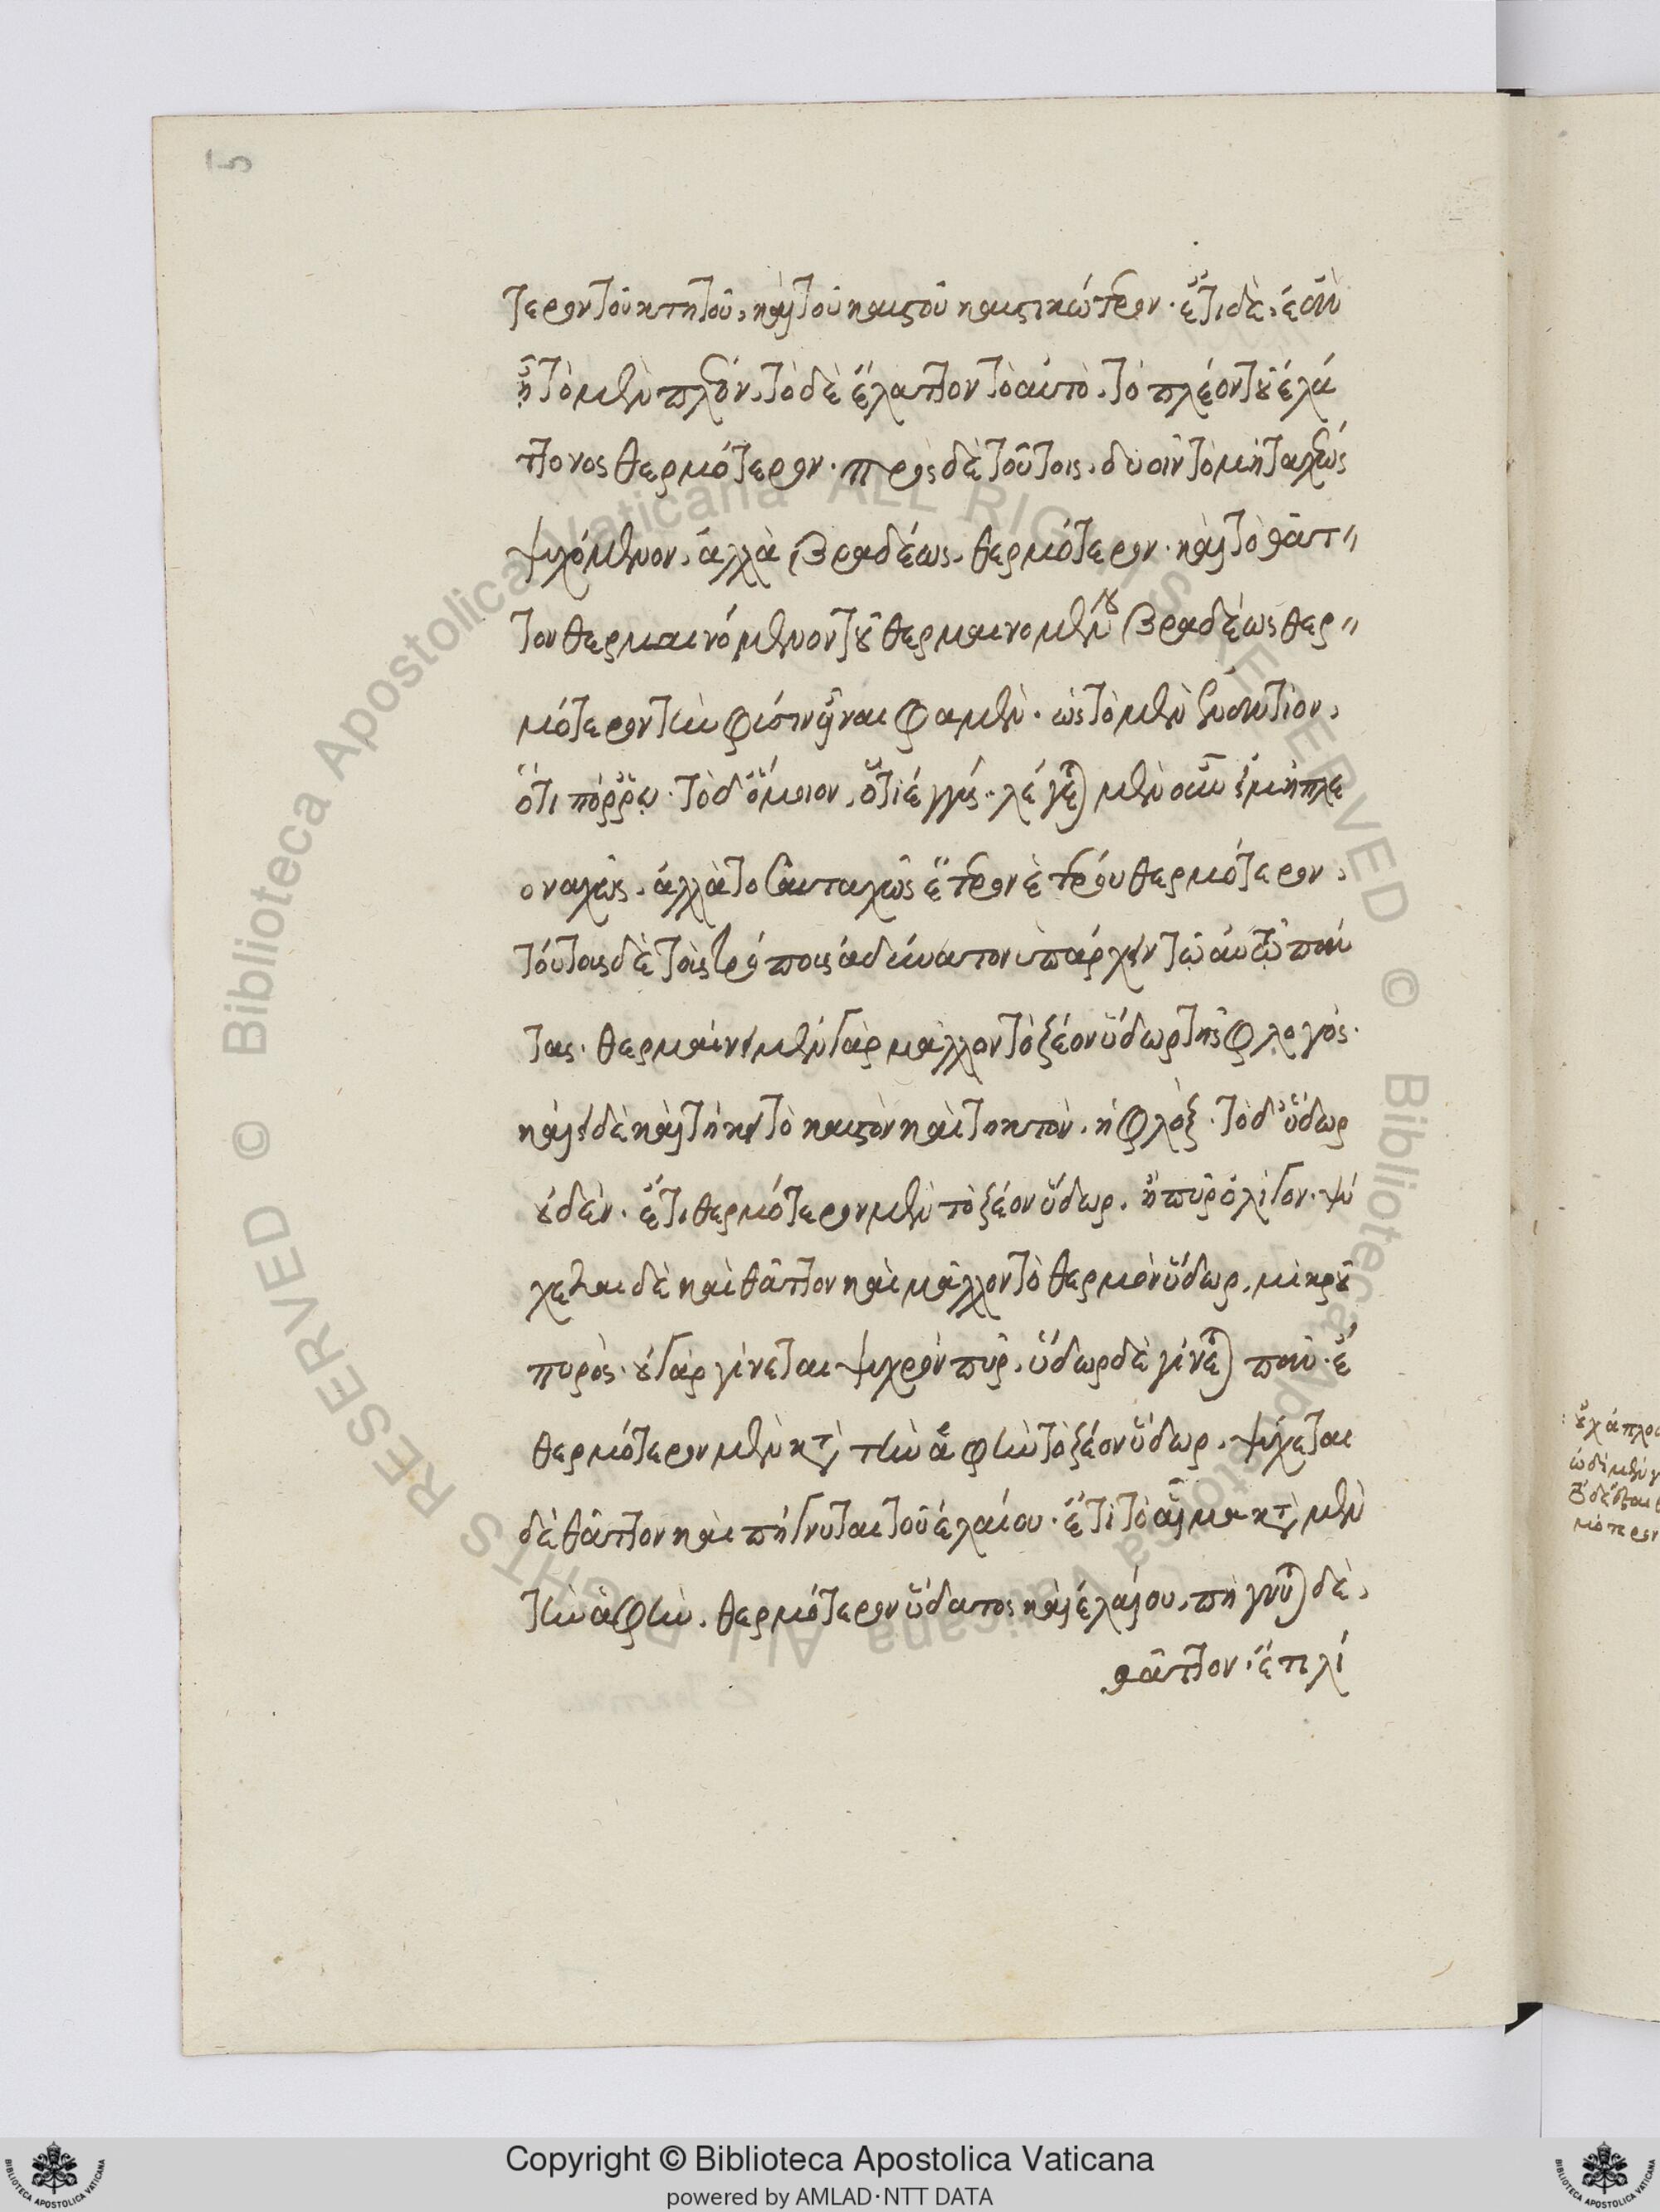 5
τερον τοῦ κτητοῦ, καὶ τοῦ καυστοῦ καυστικώτερον. ἔτι δὲ, ἐὰν
ἦ τὸ μὲν πλέον, τὸ δὲ ἔλαττον τὸ αὐτὸ, τὸ πλέον τοῦ ἐλά
ττονος θερμότερον. πρὸς δὲ τοῦτοις, δυοῖν τὸ μὴ ταχέως
ψυχόμενον, ἀλλὰ βραδέως, θερμότερον. καὶ τὸ θᾶτ〃
τον θερμαινόμενον τοῦ θερμαινομένου βραδέως θερ〃
μότερον τὴν φύσιν εἶναι φαμὲν. ὡς τὸ μὲν ἐναντίον,
ὅτι πόρρω. τὸ δ' ὅμοιον, ὅτι ἐγγύς. λέγεται μὲν οὖν εἰ μὴ πλε
οναχῶς, ἀλλὰ τοσαυταχῶς ἕτερον ἑτέρου θερμότερον,
τούτους δὲ τοὺς τρόπους ἀδύνατον ὑπάρχειν τῷ αὐτῷ πάν
τας. θερμαίνει μὲν γὰρ μᾶλλον τὸ ζέον ὕδωρ τῆς φλογός.
καίει δὲ καὶ τήκει τὸ καυστὸν καὶ τηκτὸν, ἡ φλὸξ. τὸ δ' ὕδωρ
οὐδέν. ἔτι θερμότερον μὲν τὸ ζέον ὕδωρ, ἢ πῦρ ὀλίγον. ψύ
χεται δὲ καὶ θᾶττον καὶ μᾶλλον τὸ θερμὸν ὕδωρ, μικροῦ
πυρός. οὐ γὰρ γίνεται ψυχρὸν πῦρ, ὕδωρ δὲ γίνεται πᾶν. ἔ
θερμότερον μὲν κατὰ τὴν ἁφὴν τὸ ζέον ὕδωρ, ψύχεται
δὲ θᾶττον καὶ πήγνυται τοῦ ἐλαίου. ἔτι τὸ αἷμα κατὰ μὲν
τὴν ἁφὴν, θερμότερον ὕδατος καὶ ἐλαίου, πήγνυται δὲ,
θᾶττον. ἔτι λί
Copyright © Biblioteca Apostolica Vaticana
powered by AMLAD·NTT DATA